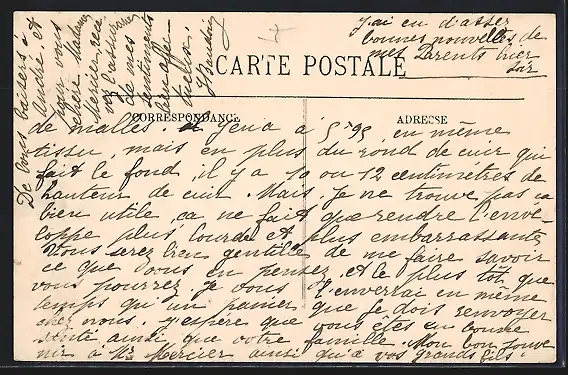 CARTE POSTALE
CORRESPONDANCE
ADRESSE
de malles. Il y en a à 5 f 95, en même
tissu, mais en plus du rond de cuir qui
fait le fond, il y a 10 ou 12 centimètres de
hauteur de cuir. Mais je ne trouve pas ça
bien utile, ça ne fait que rendre l'enve-
loppe plus lourde et plus embarrassante.
Vous serez bien gentille de me faire savoir
ce que vous en pensez, et le plus tôt que
vous pourrez. Je vous l'enverrai en même
temps qu'un panier que je dois renvoyer
chez nous. J'espère que vous êtes en bonne
santé ainsi que votre famille. Mon bon souve
nir à Mr Mercier ainsi qu'à vos grands fils.
De bons baisers à
André, et
pour vous
chère Madame
Mercier rece-
vez l'assurance
de mes
sentiments
bien affec-
tueux.
J'ai eu d'assez
bonnes nouvelles de
mes Parents hier
soir